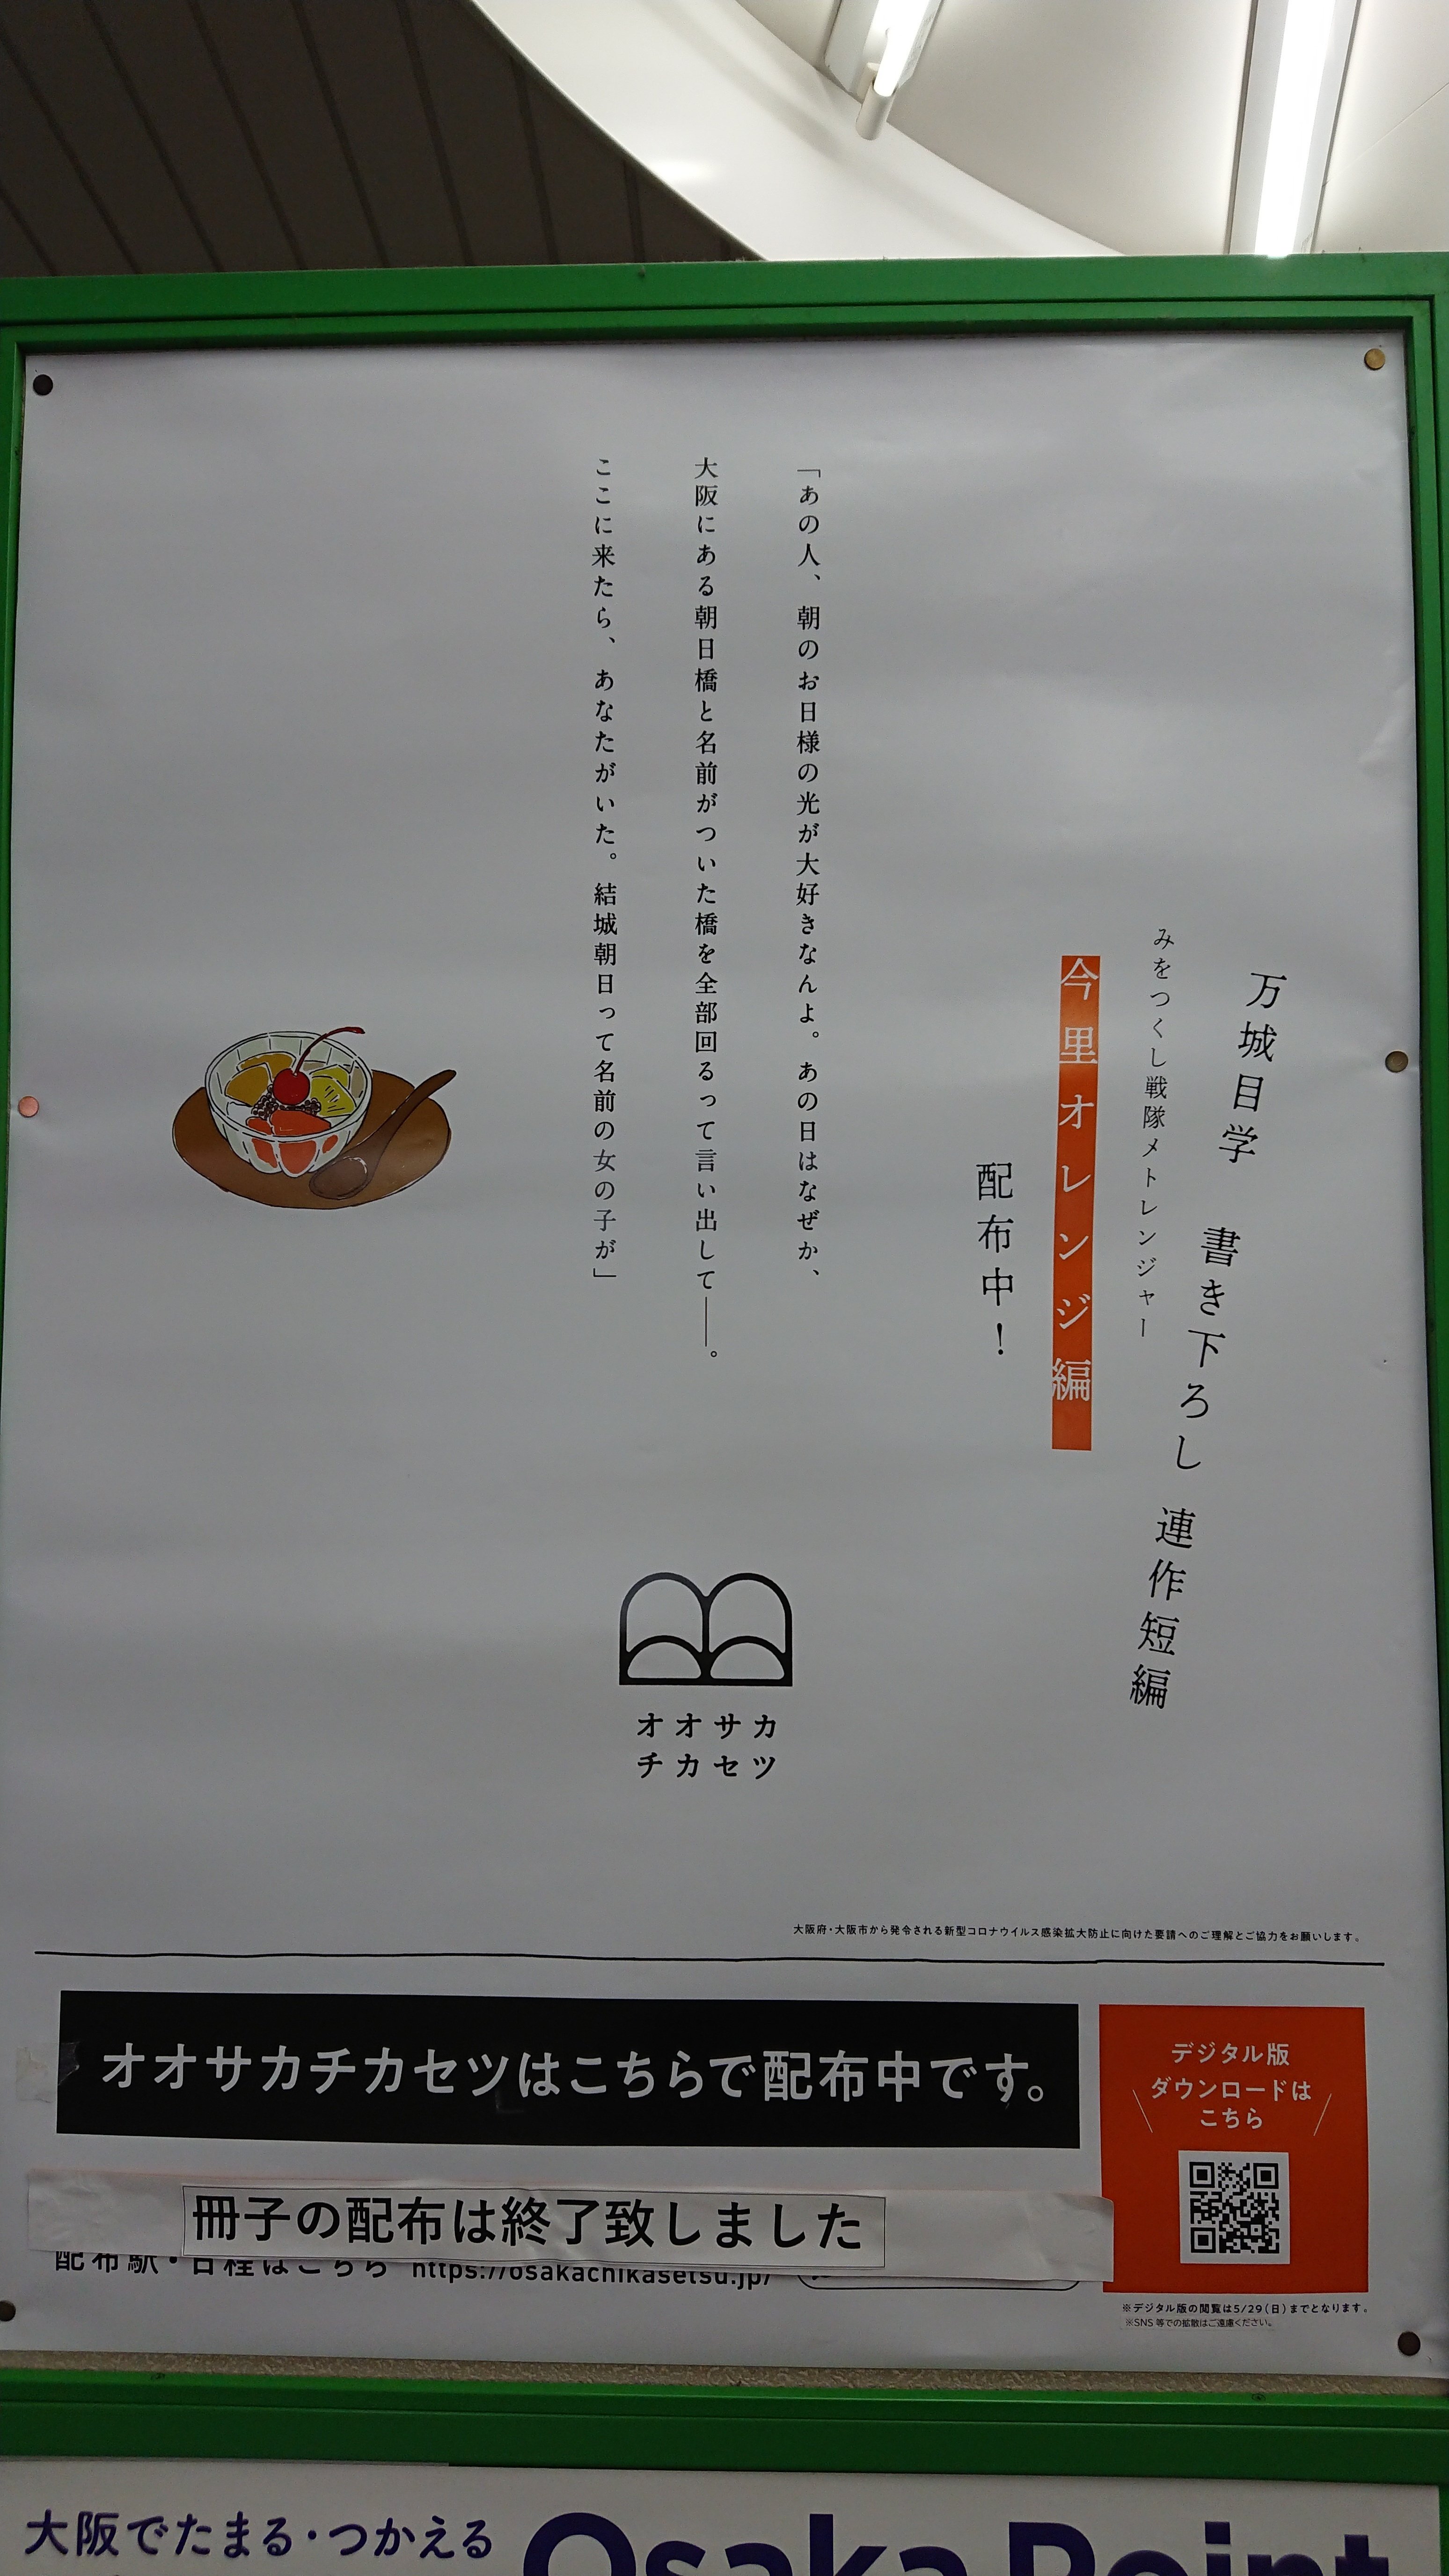 万城目学 書き下ろし 連作短編
みをつくし戦隊メトレンジャー
今里オレンジ編
配布中！
「あの人、朝のお日様の光が大好きなんよ。あの日はなぜか、
大阪にある朝日橋と名前がついた橋を全部回るって言い出して――。
ここに来たら、あなたがいた。結城朝日って名前の女の子が」
オオサカ
チカセツ
大阪府・大阪市から発令される新型コロナウイルス感染拡大防止に向けた要請へのご理解とご協力をお願いします。
オオサカチカセツはこちらで配布中です。
デジタル版
ダウンロードは
こちら
冊子の配布は終了致しました
配布駅・日程はこちら https://osakachikasetsu.jp/
※デジタル版の閲覧は5/29(日)までとなります。
※SNS 等での拡散はご遠慮ください。
大阪でたまる・つかえる
Osaka Point